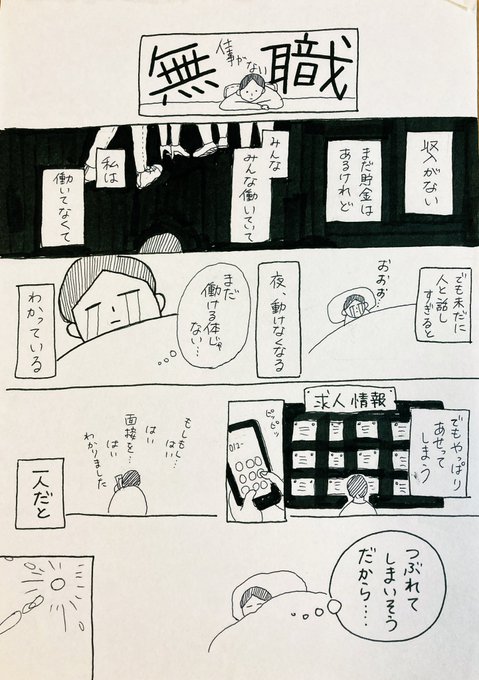 無職
仕事がない
収入がない
まだ貯金は
あるけれど
みんな
みんな働いていて
私は
働いてなくて
でも未だに
人と話し
すぎると
おぉぉ…
夜、動けなくなる
まだ
働ける体じゃ
ない…
わかっている
でもやっぱり
あせって
しまう
求人情報
ピッピッ
012-
もしもし…
はい
はい
面接を…
はい
わかりました
一人だと
つぶれて
しまいそう
だから……